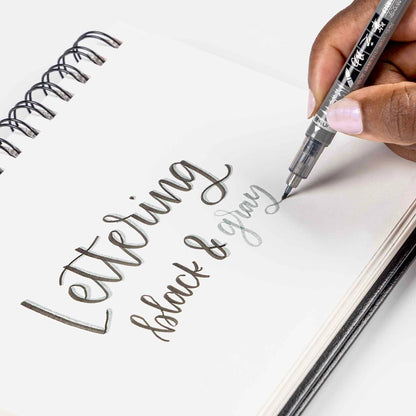 Lettering
black & gray